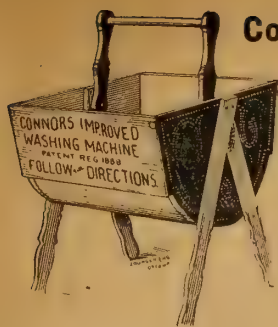 Co
CONNORS IMPROVED
WASHING MACHINE
PATENT REG 1888
FOLLOW THE DIRECTIONS.
OTTAWA